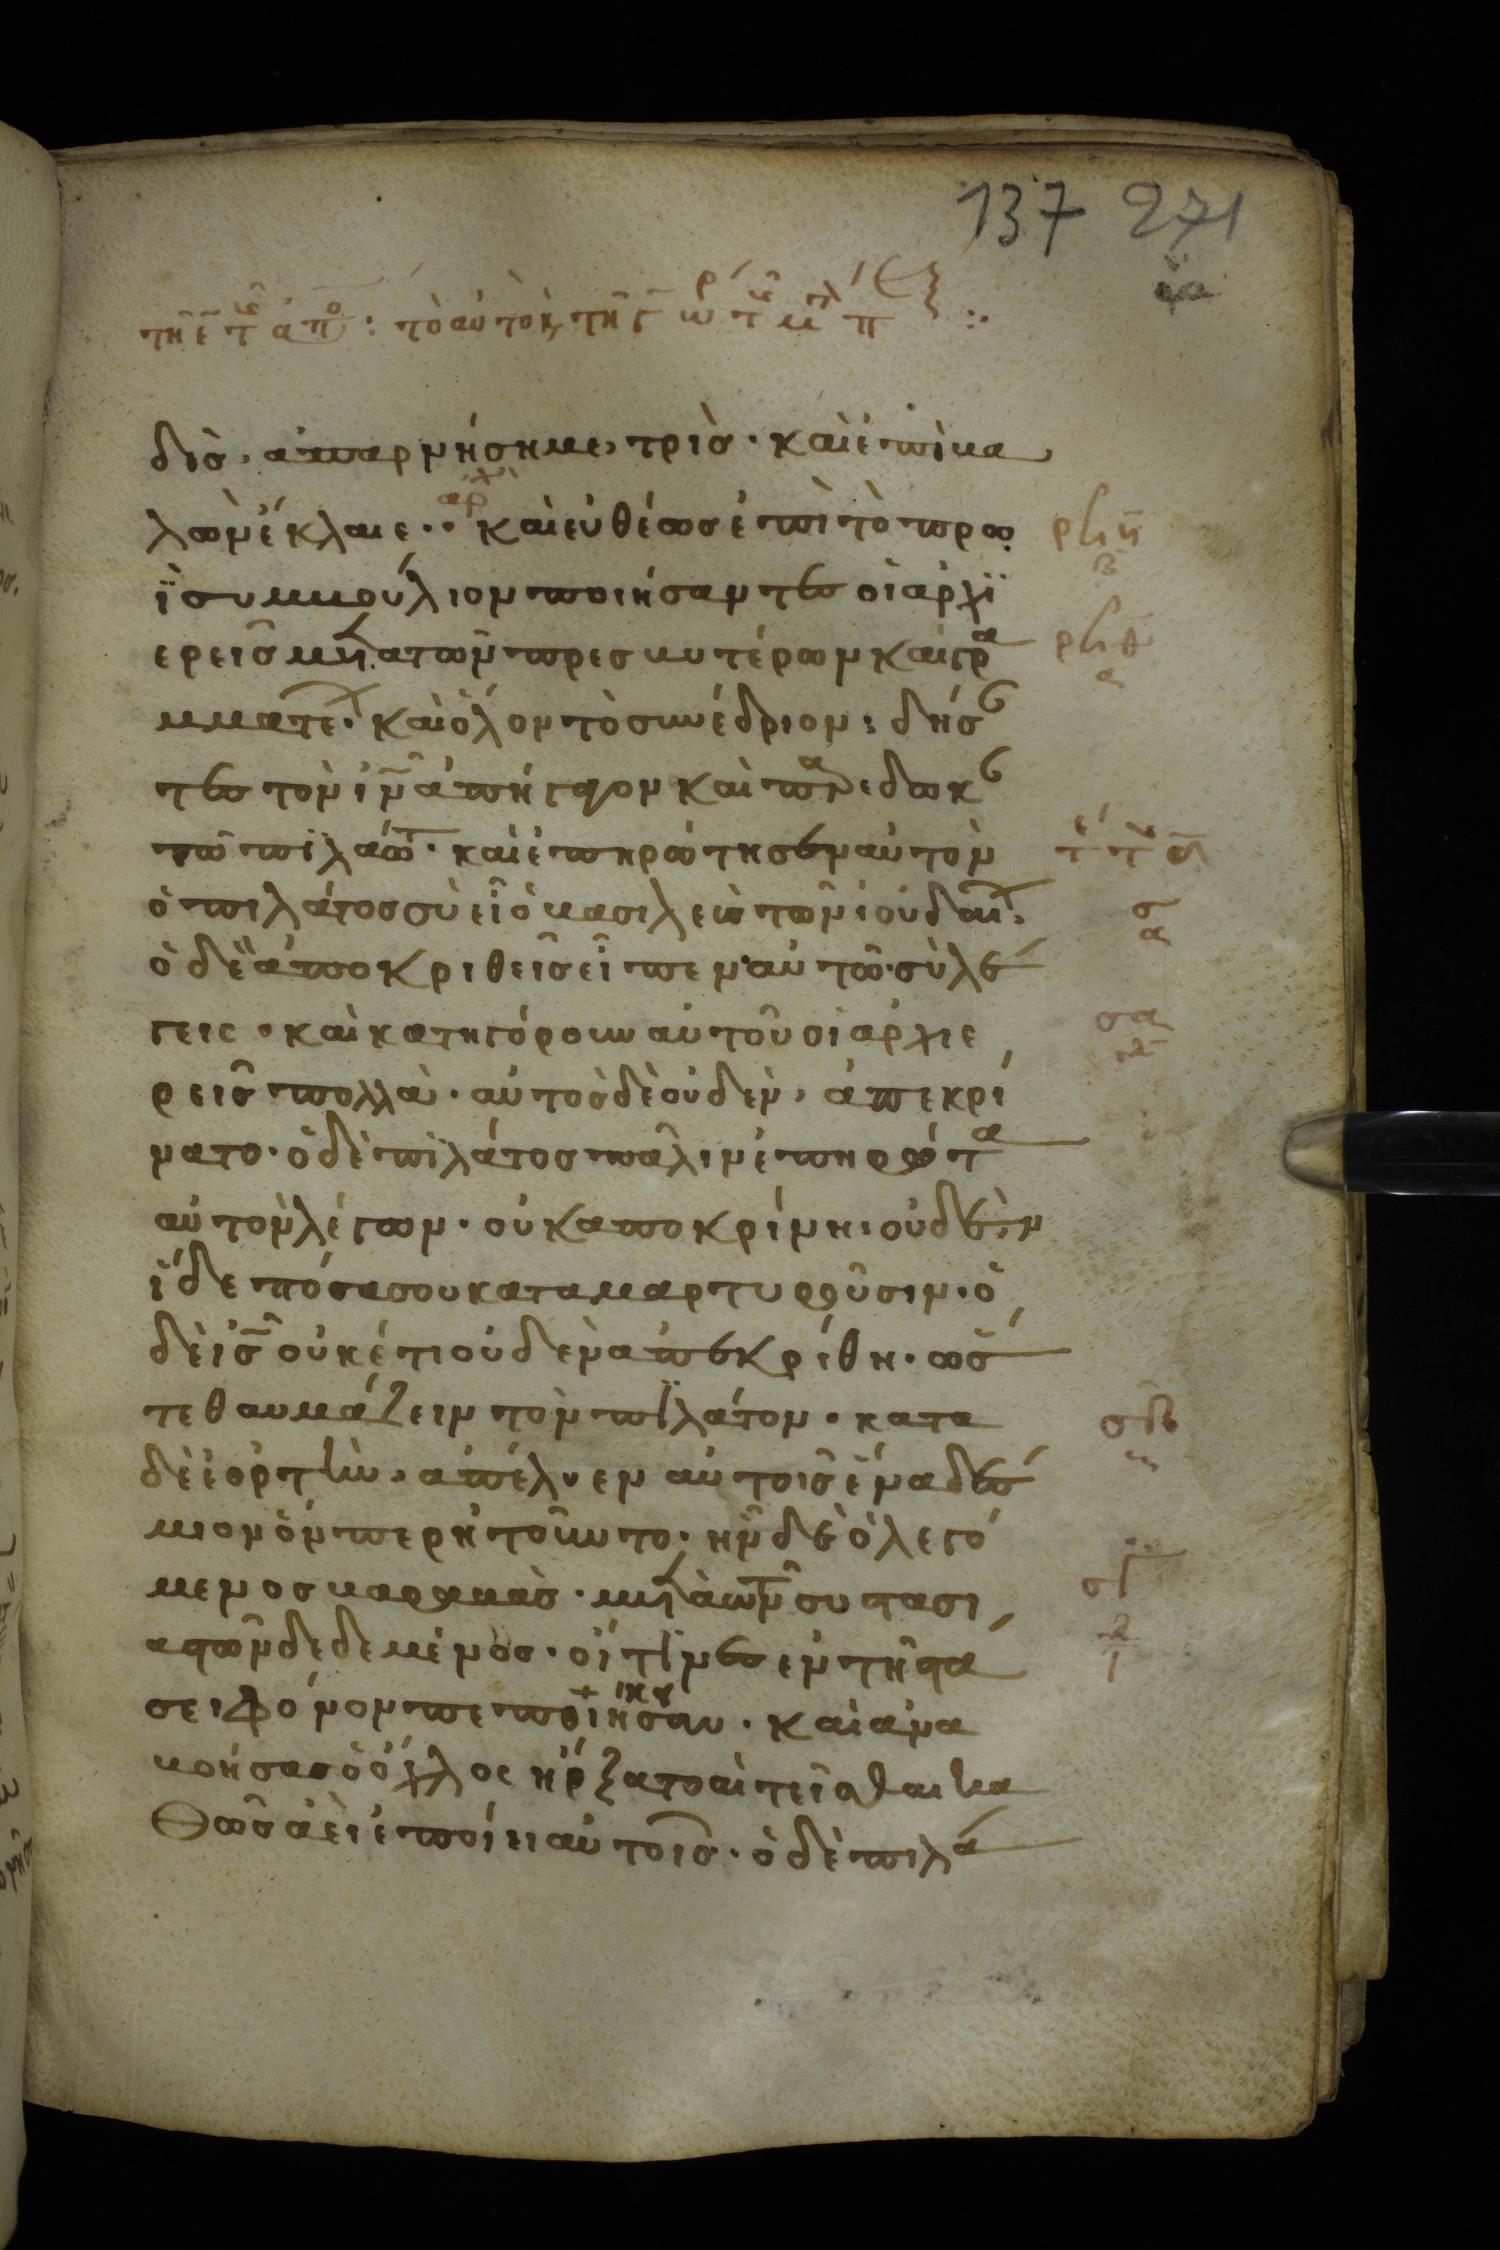 137 271
δὶς, ἀπαρνήσημε, τρὶς· καὶ ἐπιβα
ἀρχ
λὼν ἔκλαιε·· καὶ εὐθέως ἐπὶ τὸ πρω
ῒ συμβούλιον ποιήσαντες οἱ ἀρχϊ
ερεῖς μετὰ τῶν πρεσβυτέρων καὶ γρα
μματέ· καὶ ὅλον τὸ συνέδριον· δήσ
τες τὸν ιν ἀπήγαγον καὶ παρέδωκ
τῶ πιλάτ· καὶ ἐπηρώτησεν αὐτὸν
ὁ πιλάτος σὺ εἶ ὁ βασιλεὺς τῶν ἰουδαί·
ὁ δὲ ἀποκριθεὶς εἶπεν αὐτῶ· σὺ λέ
γεις· καὶ κατηγόρουν αὐτοῦ οἱ ἀρχιε
ρεῖς πολλὰ· αὐτὸς δὲ οὐδὲν, ἀπεκρί
νατο· ὁ δὲ πιλάτος πάλιν ἐπηρώτα
αὐτὸν λέγων· οὐκ ἀποκρίνη οὐδὲν
ἴδε πόσα σου καταμαρτυροῦσιν· ὁ
δὲ ις οὐκέτι οὐδὲν ἀπεκρίθη· ὥς
τε θαυμάζειν τὸν πιλάτον· κατα
δὲ ἑορτὴν, ἀπέλυεν αὐτοῖς ἕνα δέσ
μιον ὅνπερ ἠτοῦντο· ἦν δὲ ὁ λεγό
μενος βαραββὰς· μετὰ τῶν συστασι
αστῶν δεδεμένος· οἵτινες ἐν τῆ στά
σει φόνον πεποιήκησαν· καὶ ἀνα
βοήσας ὁ ὄχλος ἤρξατο αἰτεῖσθαι κα
θὼς ἀεὶ ἐποίει αὐτοῖς· ὁ δὲ πιλά
ρϟη
β
ρϟθ
α
σ
α
σα
σβ
σγ